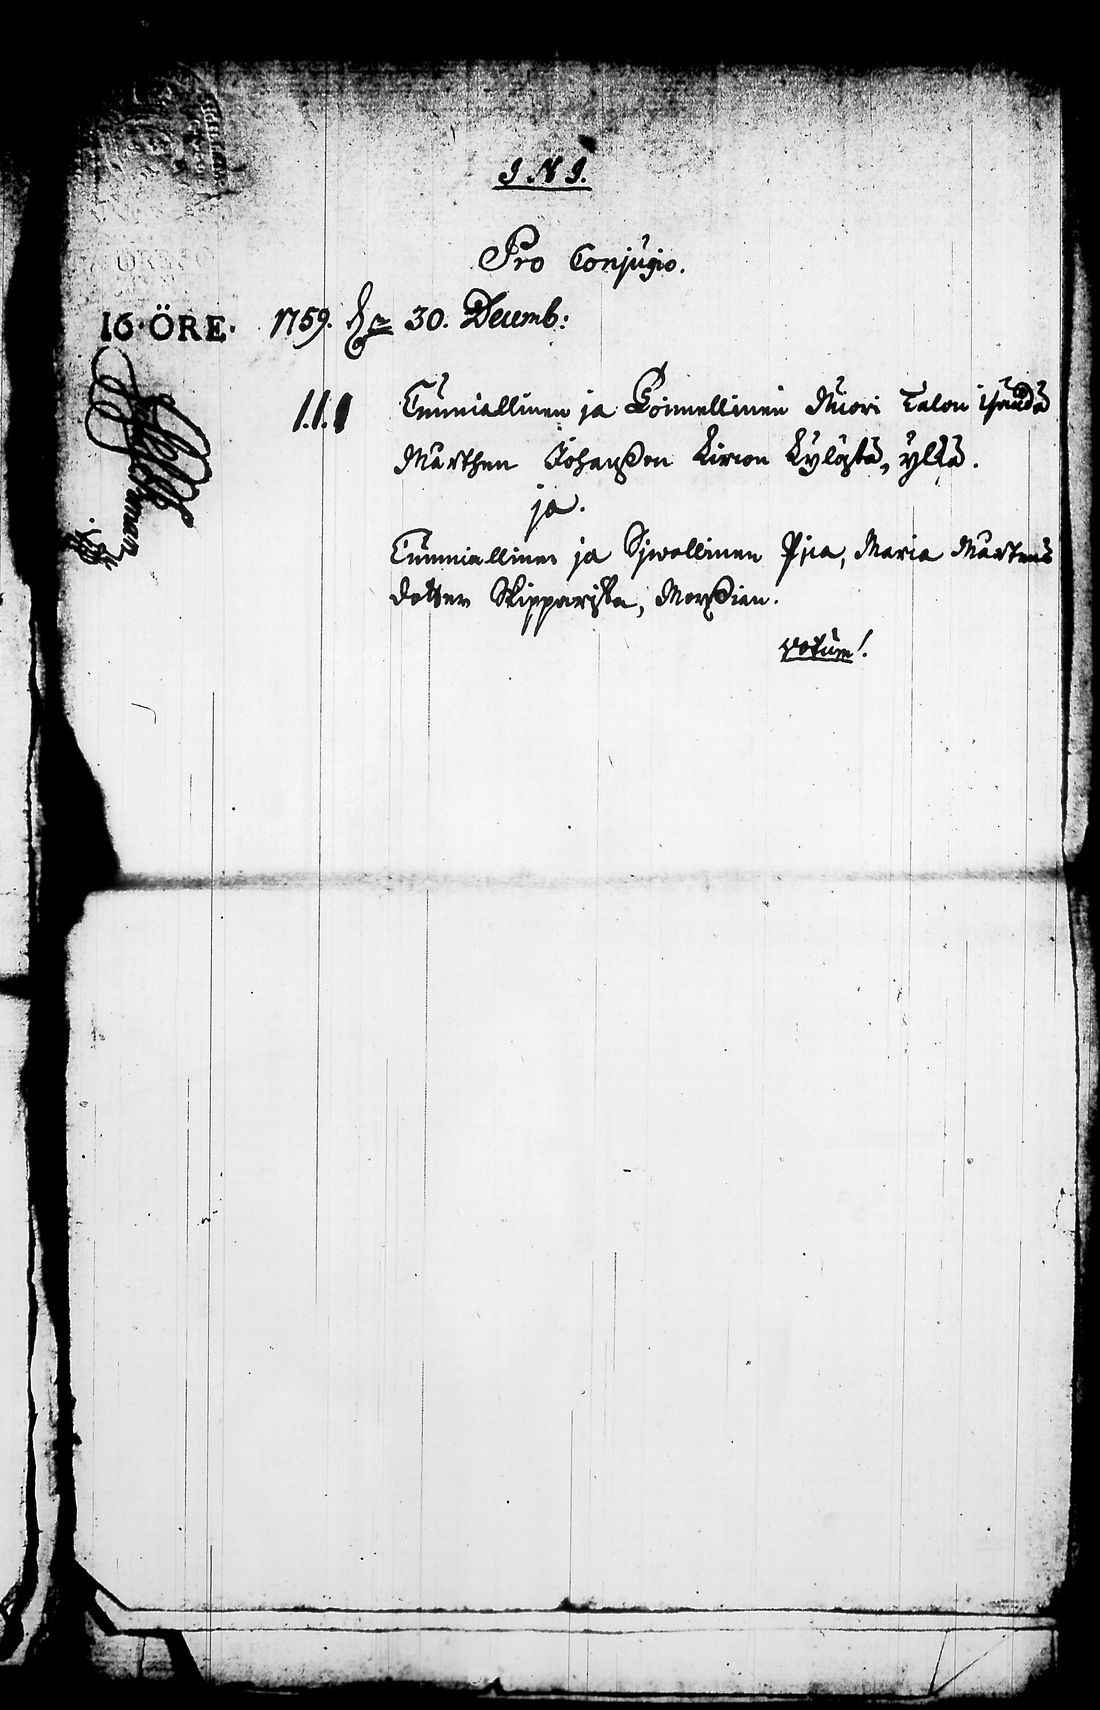 I.N.I.
Pro Conjugio.
16·ÖRE· 1759. 30. Decemb:
1.1.1 Cunniallinen ja Toimellinen Nuori Talon isändä
Marthen Johansson Kircon KyläsTä, yltä.
ja.
Cunniallinen ja Sjwollinen Pjca, Maria Martens
dotter Skipparista,
votum!.